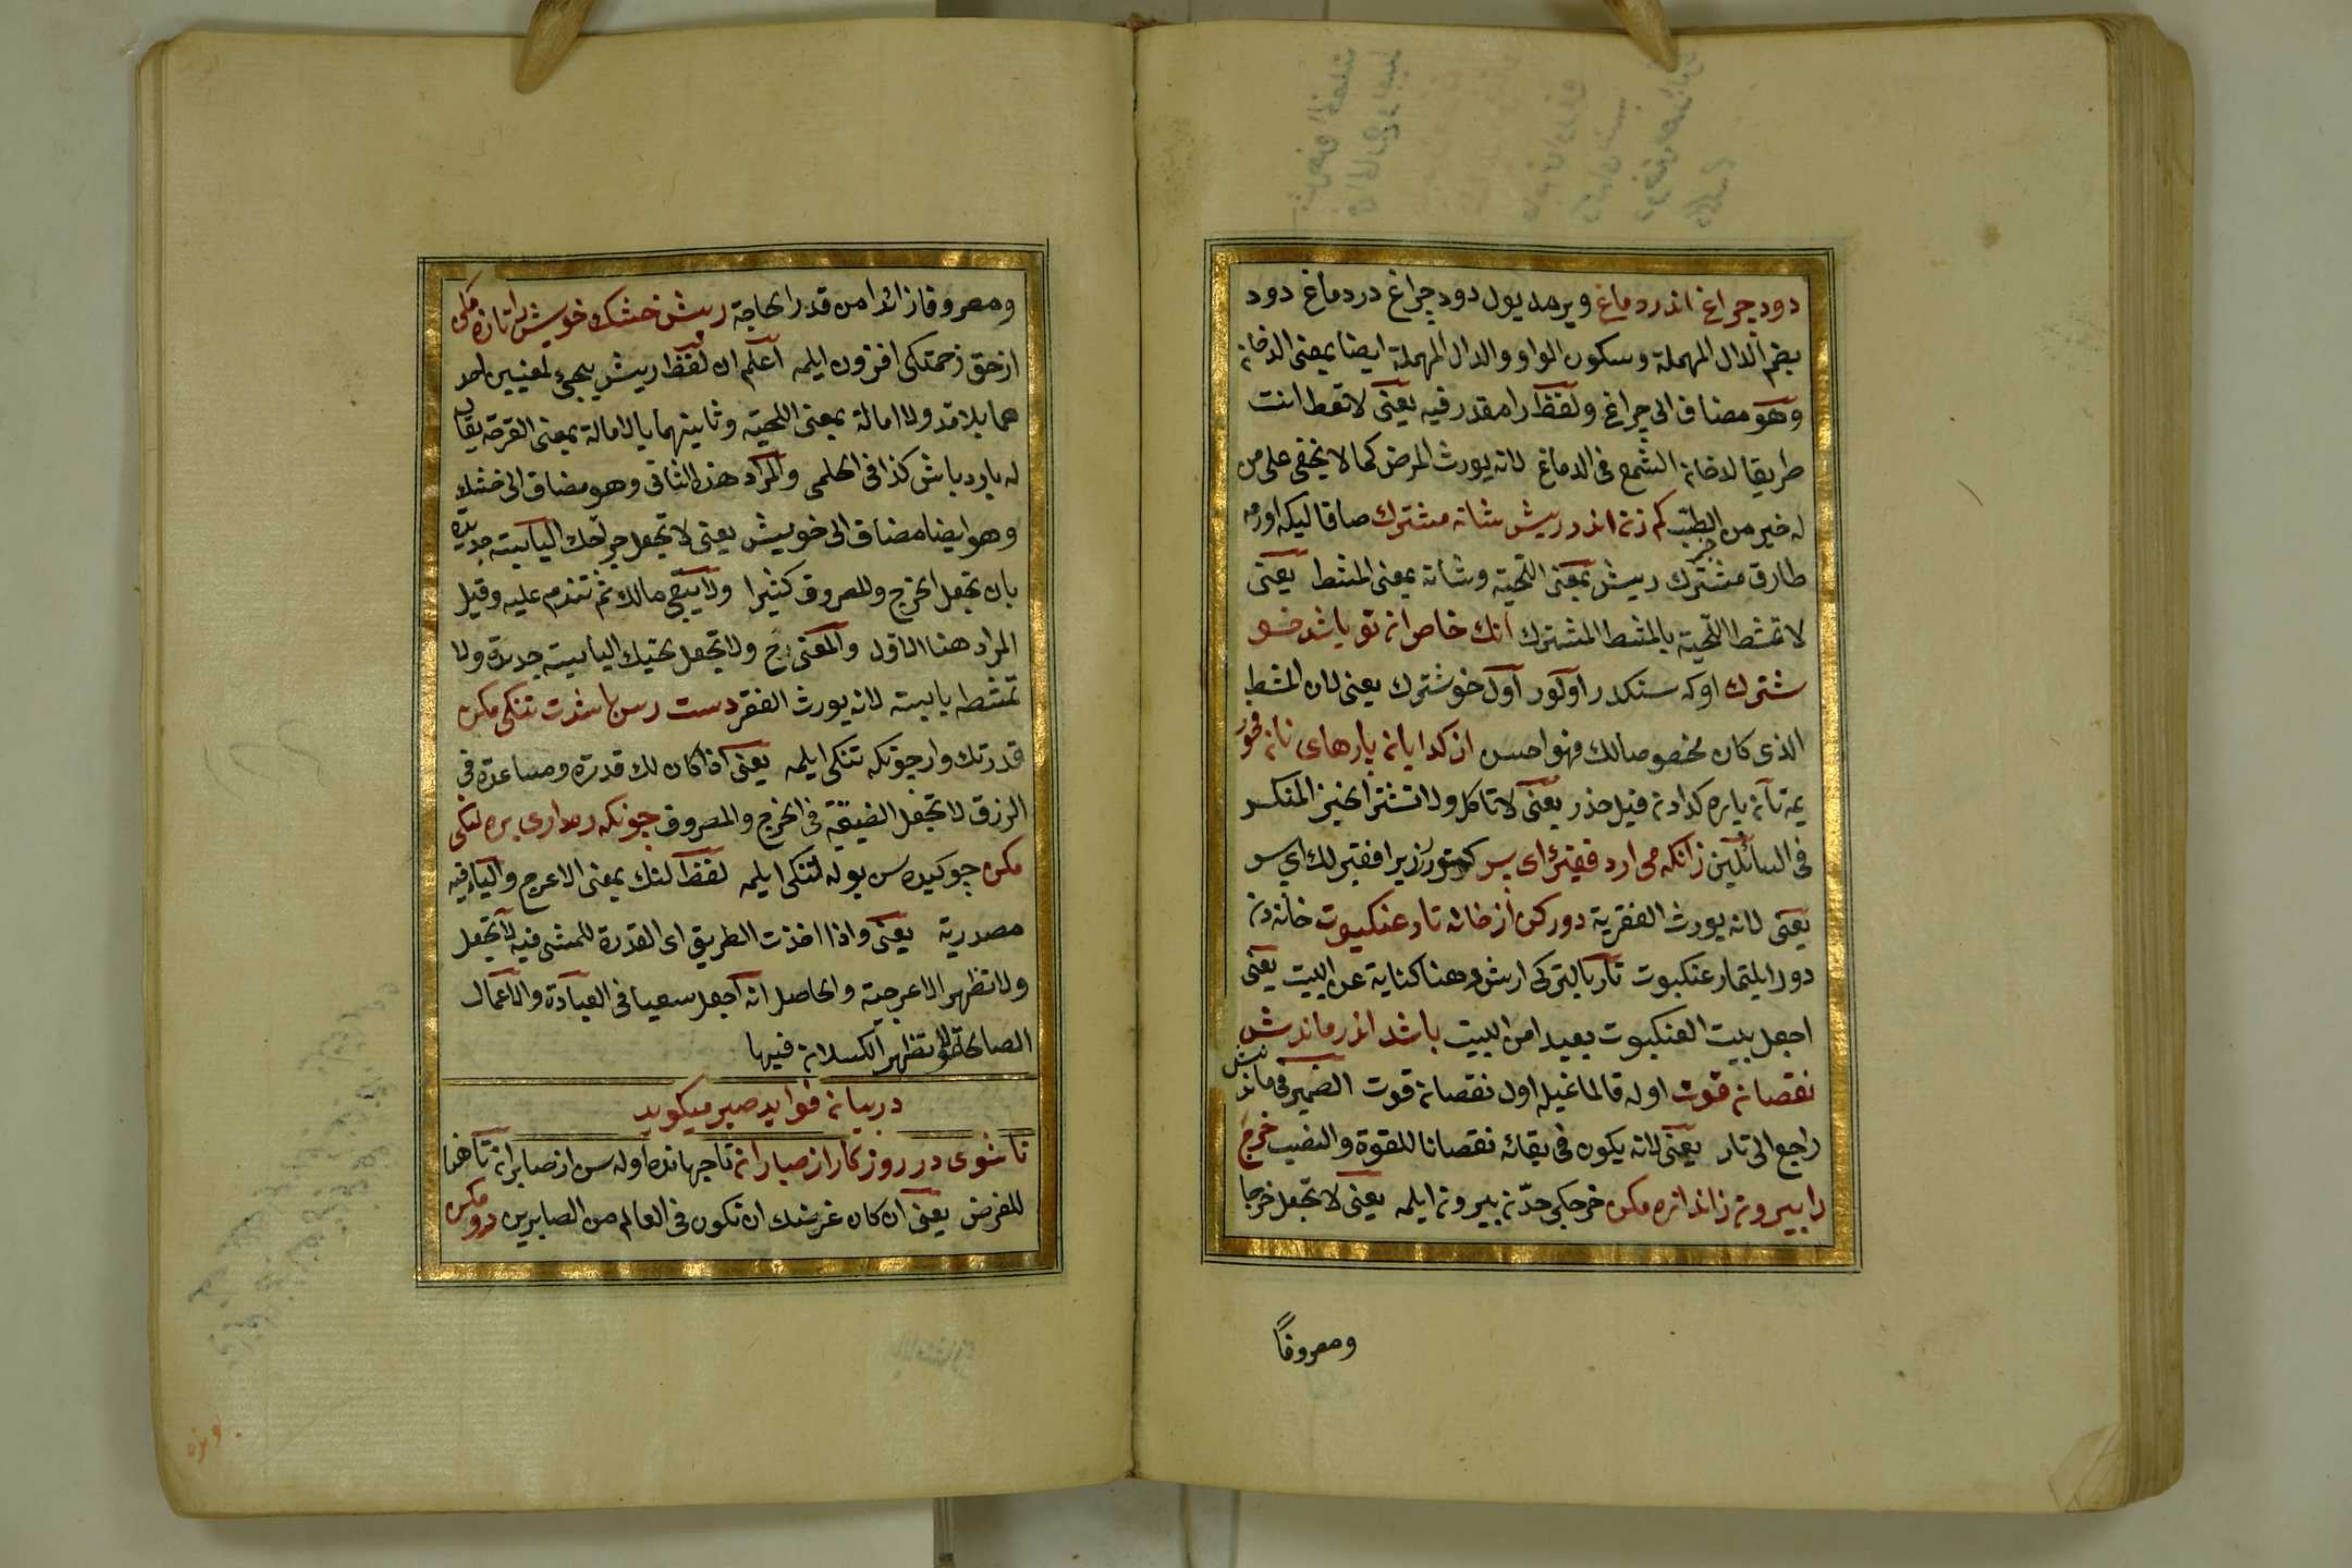 دود چراغ اندر دماغ ويرمه يول دود چراغ در دماغ دود
بضم الدال المهملة وسكون الواو والدال المهملة ايضا بمعنى الدخان
وهو مضاف الى چراغ ولفظ را مقدر فيه يعنى لا تعط انت
طريقا لدخان الشمع فى الدماغ لانه يورث المرض كما لا يخفى على من
له خير من الطب كم زن اندر ريش شانه مشترك صاقاليكه اورمه
طارق مشترك ريش بمعنى اللحية وشانه بمعنى المشط يعنى
لا تمشط اللحية بالمشط المشترك آنك خاص ان تو باشد خو
شترك اوكه سنكدر اولور اول خوشترك يعنى لان المشط
الذى كان مخصوصا لك فهو احسن از كدايان پارهاى نان مخور
يمه نان پاره كدادن قيل حذر يعنى لا تاكل ولا تشتر الخبز المنكسر
فى السائلين زانكه مى ارد فقيرى اى پسر كتورر زيرا فقيرلك اى پسر
يعنى لانه يورث الفقرية دور كن از خانه تار عنكبوت خانه دن
دور ايلتمار عنكبوت تار بالتركى ارش وهنا كناية عن البيت يعنى
اجعل بيت العنكبوت بعيدا من البيت باشد اندر ماندنش
نقصان قوت اوله قالماغيله اول نقصان قوت الضمير فى ماندنش
راجع الى تار يعنى لانه يكون فى بقائه نقصانا للقوة والنصيب خرج
را بيرون ز اندازه مكن خرجكى حدن بيرون ايلمه يعنى لا تجعل خرجا
ومصروفًا
ومصروفا زائدا من قدر الحاجة ريش خشك خويش را تازه مكن
از حق زحمتكى افزون ايلمه اعلم ان لفظ ريش يجئ لمعنيين احد
هما بلا مد ولا امالة بمعنى اللحية وثانيهما بالامالة بمعنى القرحة يقال
له يارد باش كذا فى الحلمى والمراد هذا الثانى وهو مضاف الى خشك
وهو ايضا مضاف الى خويش يعنى لا تجعل جراحك اليابسة جديدة
بان تجعل الخرج والمصروف كثيرا ولا يبقى مالك ثم تندم عليه وقيل
المراد هنا الاول والمعنى ح ولا تجعل لحيتك اليابسة جديدة ولا
تمشطه يابسة لانه يورث الفقر دست رس باشدت تنكى مكن
قدرتك وار چونكه تنكى ايلمه يعنى اذا كان لك قدرة ومساعدة فى
الرزق لا تجعل الضيقة فى الخرج والمصروف چونكه رهوارى بره لنكى
مكن چو كيدرسن يوله لنكى ايلمه لفظ لنك بمعنى الاعرج والياء فيه
مصدرية يعنى واذا اخذت الطريق اى القدرة للمشى فيه لا تجعل
ولا تظهر الاعرجية والحاصل انه اجعل سعيا فى العبادة والاعمال
الصالحة ولا تظهر الكسلان فيها
در بيان فوايد صبر ميكويد
تا شوى در روزكار از صبارانى تا جهانده اوله سن از صابران تا هنا
للغرض يعنى ان كان غرضك ان تكون فى العالم من الصابرين رو مكن